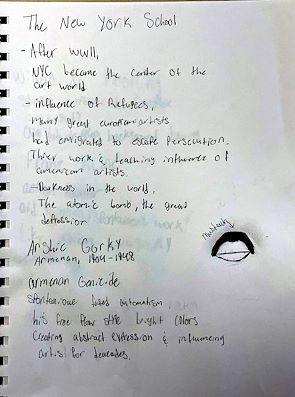 The New York School
- After WWII,
NYC became the center of the
art world
- influence of Refugees,
many great european artists
had emigrated to escape Persecution.
Thier work & teaching influence of
american artists.
- Darkness in the world,
The atomic bomb, the great
depression
Arshic Gorky
Armenan, 1904-1948
mustach
armenan Genicide
automatism
his free flow style bright colors
Creating abstract expression & influencing
artist for deacades.